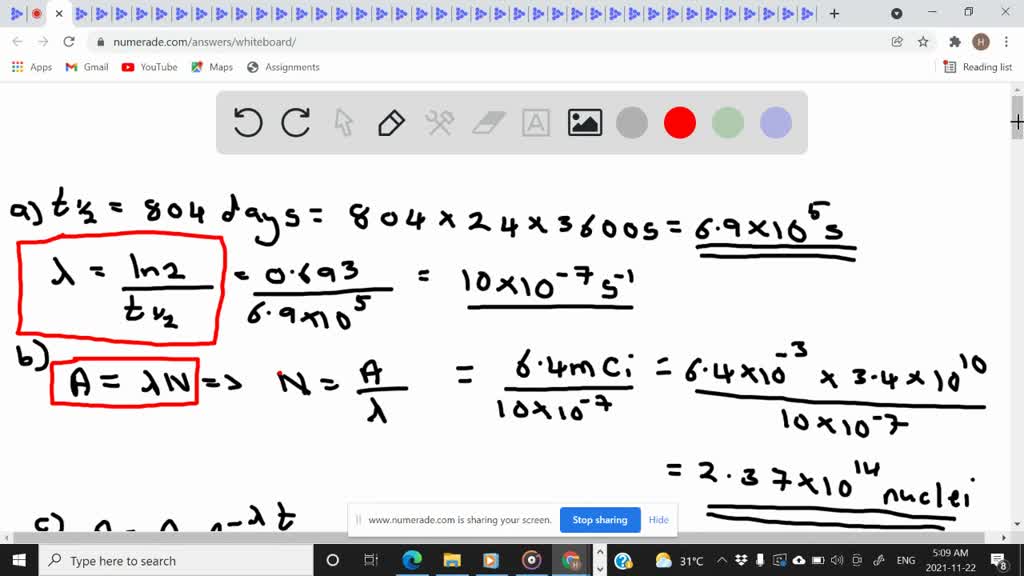 numerade.com/answers/whiteboard/
H
Apps Gmail YouTube Maps Assignments Reading list
A
a) t½ = 804 days = 804 × 24 × 3600s = 6.9×10⁵s
λ = ln2 / t½ = 0.693 / 6.9×10⁵ = 10×10⁻⁷ s⁻¹
b) A = λN => N = A / λ = 6.4mCi / 10×10⁻⁷ = 6.4×10⁻³ × 3.4×10¹⁰ / 10×10⁻⁷
= 2.37×10¹⁴ nuclei
www.numerade.com is sharing your screen. Stop sharing Hide
Type here to search
31°C ENG 5:09 AM
2021-11-22
8